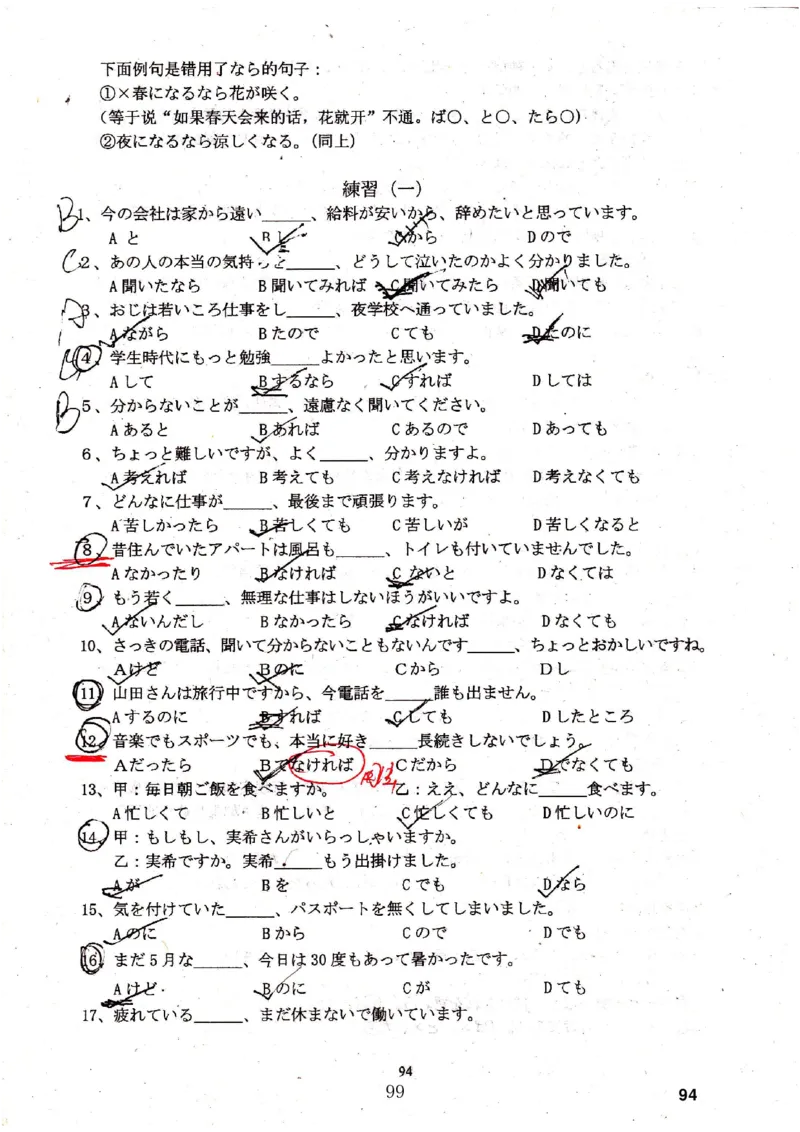 下面例句是错用了なら的句子：
①×春になるなら花が咲く。
(等于说“如果春天会来的话，花就开”不通。ば〇、と〇、たら〇)
②夜になるなら涼しくなる。(同上)
練習（一）
B 1、今の会社は家から遠い______、給料が安いから、辞めたいと思っています。
A と B し C から D ので
C 2、あの人の本当の気持ちを______、どうして泣いたのかよく分かりました。
A 聞いたなら B 聞いてみれば C 聞いてみたら D 聞いても
3、おじは若いころ仕事をし______、夜学校へ通っていました。
A ながら B たので C ても D たのに
4、学生時代にもっと勉強______よかったと思います。
A して B するなら C すれば D しては
B 5、分からないことが______、遠慮なく聞いてください。
A あると B あれば C あるので D あっても
6、ちょっと難しいですが、よく______、分かりますよ。
A 考えれば B 考えても C 考えなければ D 考えなくても
7、どんなに仕事が______、最後まで頑張ります。
A 苦しかったら B 苦しくても C 苦しいが D 苦しくなると
8、昔住んでいたアパートは風呂も______、トイレも付いていませんでした。
A なかったり B なければ C ないと D なくては
9、もう若く______、無理な仕事はしないほうがいいですよ。
A ないんだし B なかったら C なければ D なくても
10、さっきの電話、聞いて分からないこともないんです______、ちょっとおかしいですね。
A けど B のに C から D し
11、山田さんは旅行中ですから、今電話を______誰も出ません。
A するのに B すれば C しても D したところ
12、音楽でもスポーツでも、本当に好き______長続きしないでしょう。
A だったら B でなければ C だから D でなくても
13、甲：毎日朝ご飯を食べますか。 乙：ええ、どんなに______食べます。
A 忙しくて B 忙しいと C 忙しくても D 忙しいのに
14、甲：もしもし、実希さんがいらっしゃいますか。
乙：実希ですか。実希______もう出掛けました。
A が B を C でも D なら
15、気を付けていた______、パスポートを無くしてしまいました。
A のに B から C ので D でも
16、まだ5月な______、今日は30度もあって暑かったです。
A けど B のに C が D ても
17、疲れている______、まだ休まないで働いています。
94
99
94